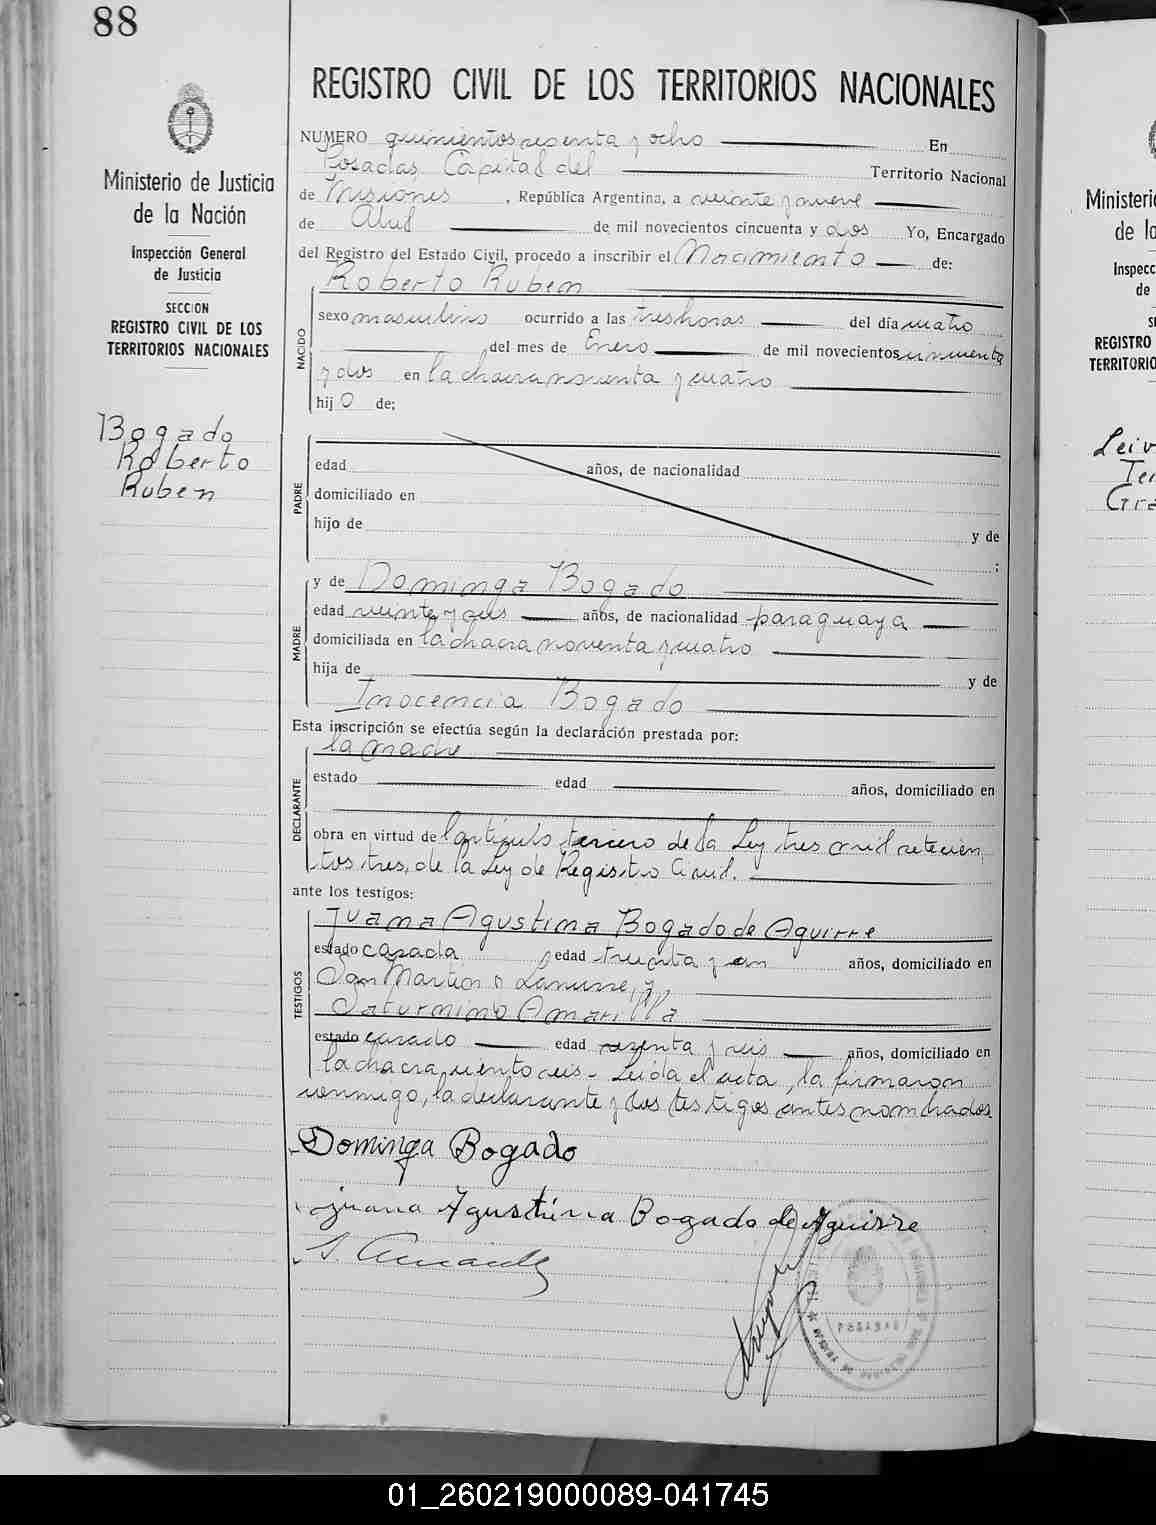 88
REGISTRO CIVIL DE LOS TERRITORIOS NACIONALES
Ministerio de Justicia
de la Nación
Inspección General
de Justicia
SECCION
REGISTRO CIVIL DE LOS
TERRITORIOS NACIONALES
Bogado
Roberto
Ruben
NUMERO quinientos sesenta y ocho En
Posadas, Capital del Territorio Nacional
de Misiones, República Argentina, a veinte y nueve
de Abril de mil novecientos cincuenta y dos Yo, Encargado
del Registro del Estado Civil, procedo a inscribir el Nacimiento de:
Roberto Ruben
NACIDO
sexo masculino ocurrido a las tres horas del día cuatro
del mes de Enero de mil novecientos cincuenta
y dos en la chacra noventa y cuatro
hijo de;
PADRE
edad años, de nacionalidad
domiciliado en
hijo de y de
;
MADRE
y de Dominga Bogado
edad veinte y seis años, de nacionalidad paraguaya
domiciliada en la chacra noventa y cuatro
hija de y de
Inocencia Bogado
Esta inscripción se efectúa según la declaración prestada por:
la madre
DECLARANTE
estado edad años, domiciliado en
obra en virtud de l artículo tercero de la Ley tres mil setecien
tos tres, de la Ley de Registro Civil.
ante los testigos:
Juana Agustina Bogado de Aguirre
TESTIGOS
estado casada edad treinta y un años, domiciliado en
San Martin o Lanusse, y,
Saturnino Amarilla
estado casado edad sesenta y seis años, domiciliado en
la chacra ciento seis - Leida el acta, la firmaron
conmigo, la declarante y los testigos antes nombrados
Dominga Bogado
juana Agustina Bogado de Aguirre
S. Amarilla
POSADAS
Ministeri
de la
Inspecc
de
REGISTRO
TERRITORIO
Leiv
Te
Gra
01_260219000089-041745